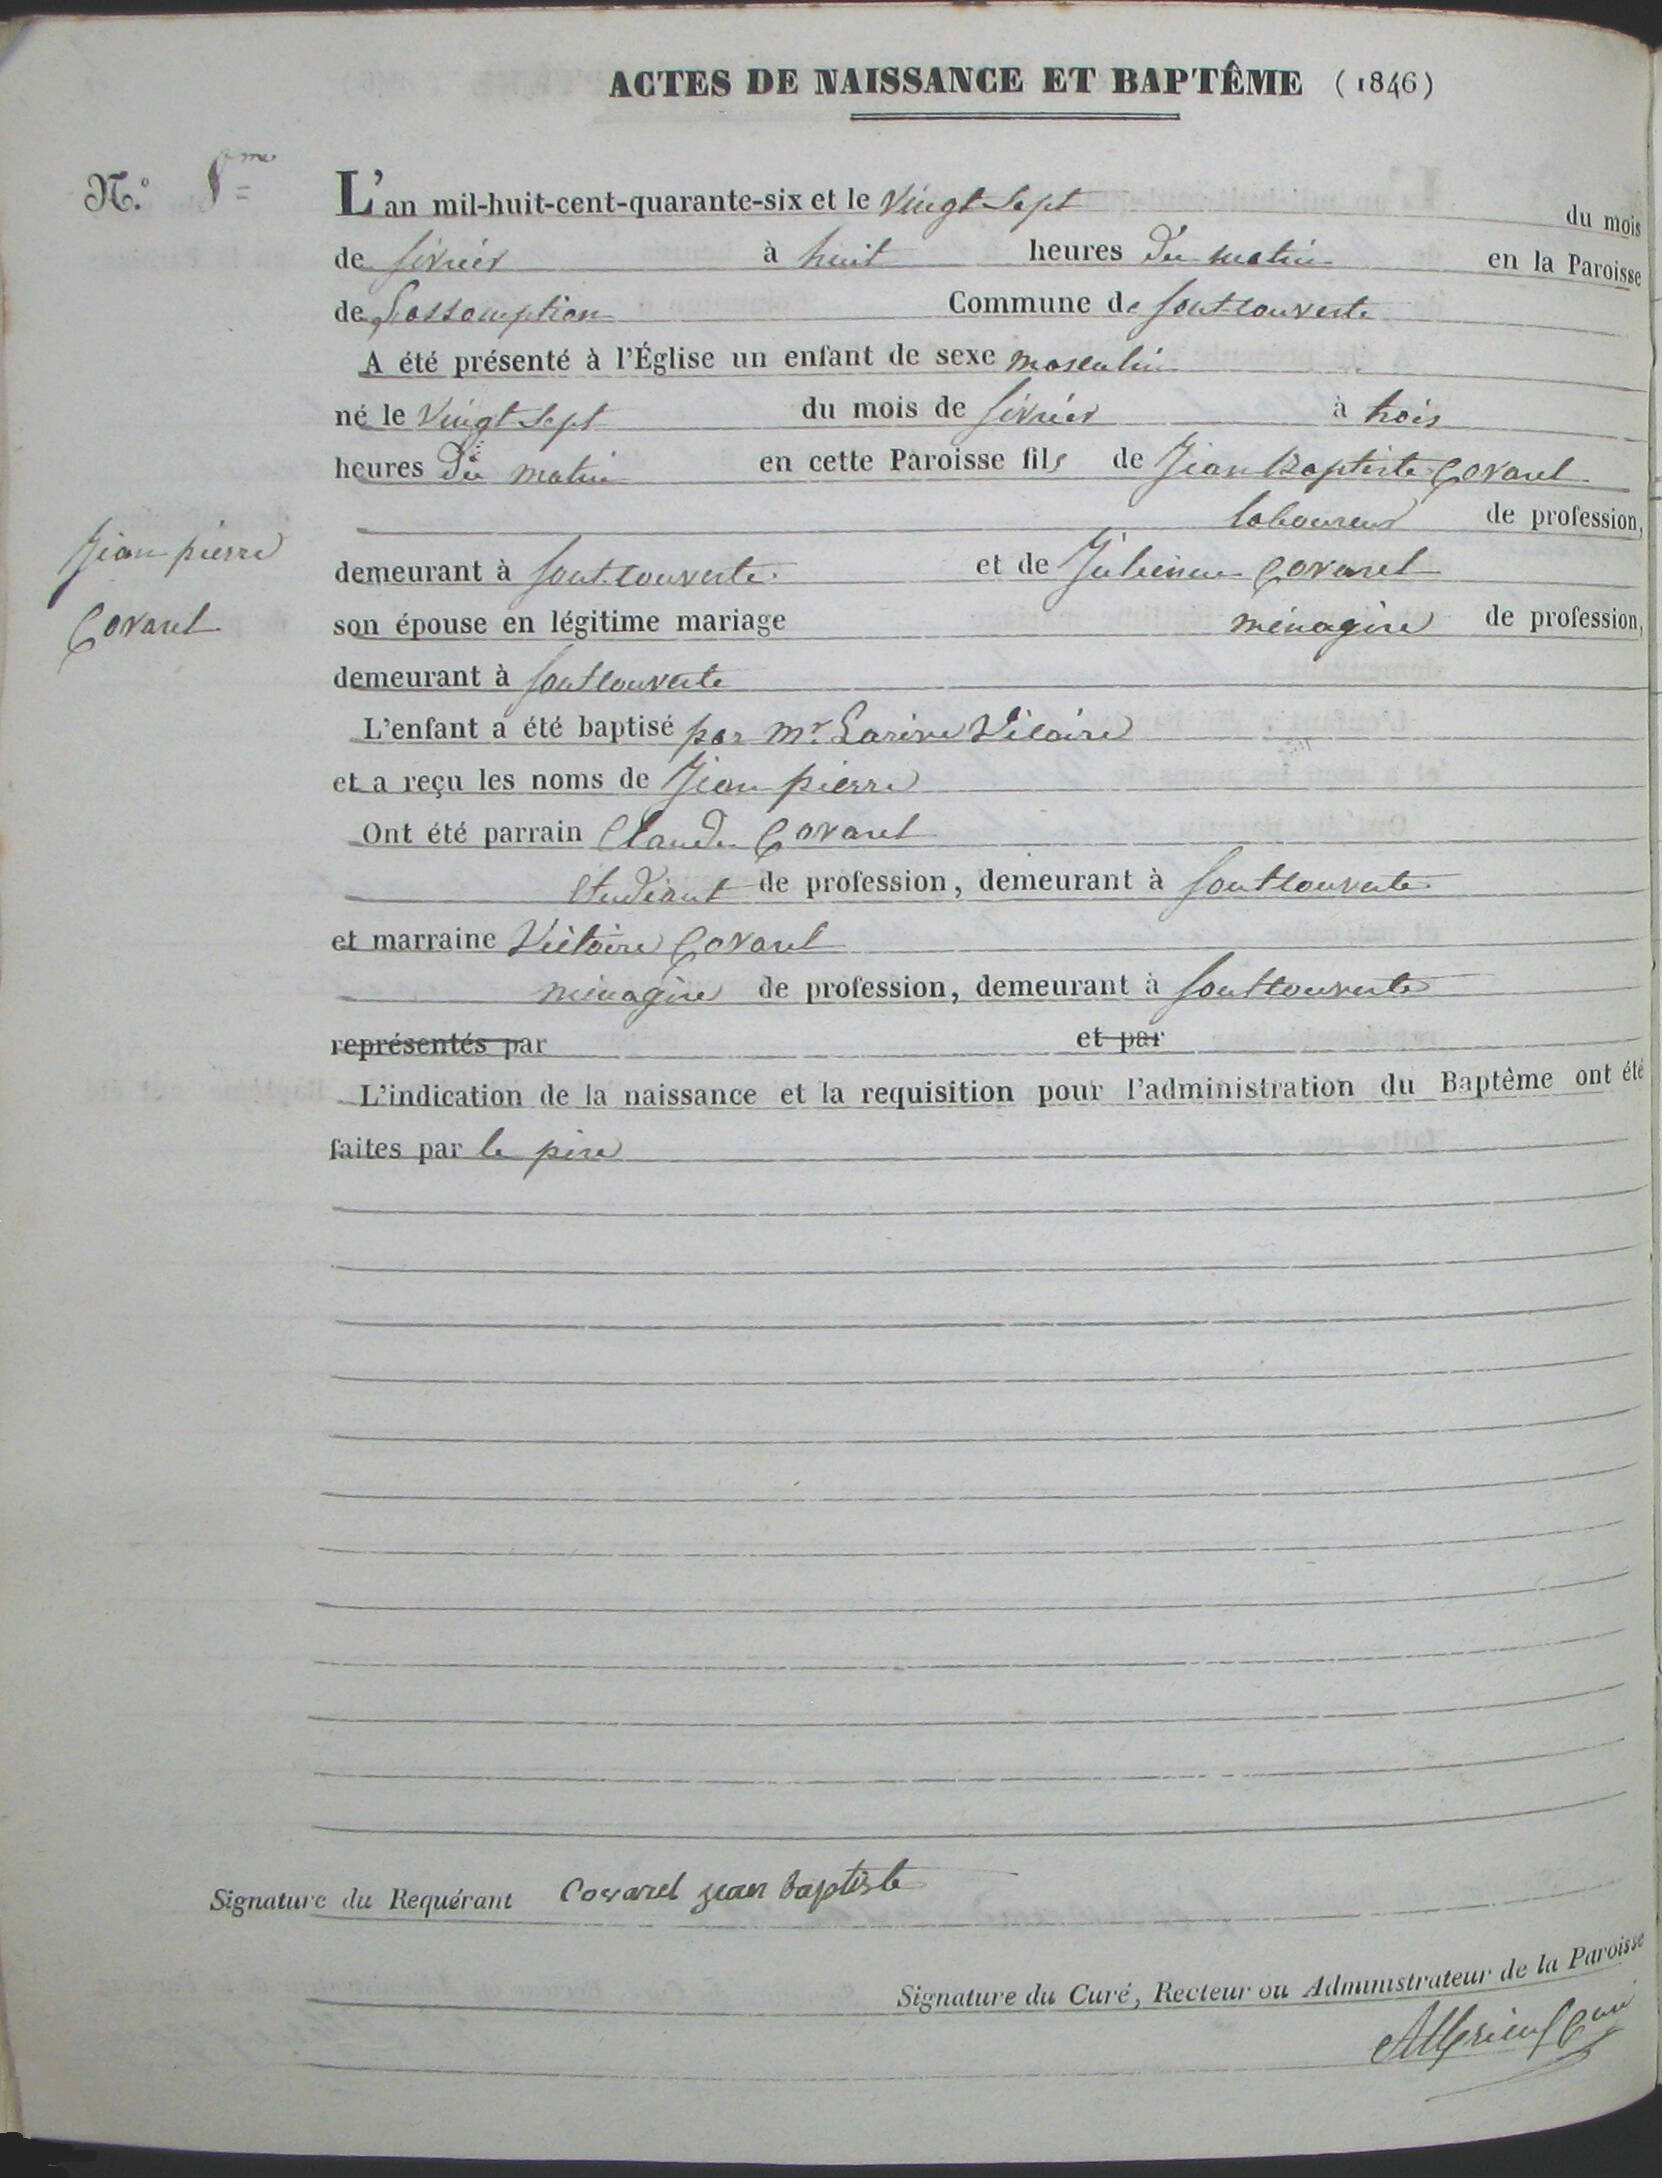 ACTES DE NAISSANCE ET BAPTÊME (1846)
N.°
L'an mil-huit-cent-quarante-six et le vingt sept du mois
de févriér à huit heures du matin en la Paroisse
de L'assomption Commune de fontcouverte
A été présenté à l'Église un enfant de sexe masculin
né le vingt sept du mois de févriér à trois
heures du matin en cette Paroisse fils de Jean Baptiste Covarel
laboureur de profession,
Jean pierre
demeurant à fontcouverte et de Julienne Covarel
Covarel
son épouse en légitime mariage ménagère de profession,
demeurant à fontcouverte
L'enfant a été baptisé par mr. Larive Vicaire
et a reçu les noms de Jean pierre
Ont été parrain Claude Covarel
étudiant de profession, demeurant à fontcouverte
et marraine Victoire Covarel
ménagère de profession, demeurant à fontcouverte
représentés par et par
L'indication de la naissance et la requisition pour l'administration du Baptême ont été
faites par le père
Signature du Requérant Covarel jean baptiste
Signature du Curé, Recteur ou Administrateur de la Paroisse